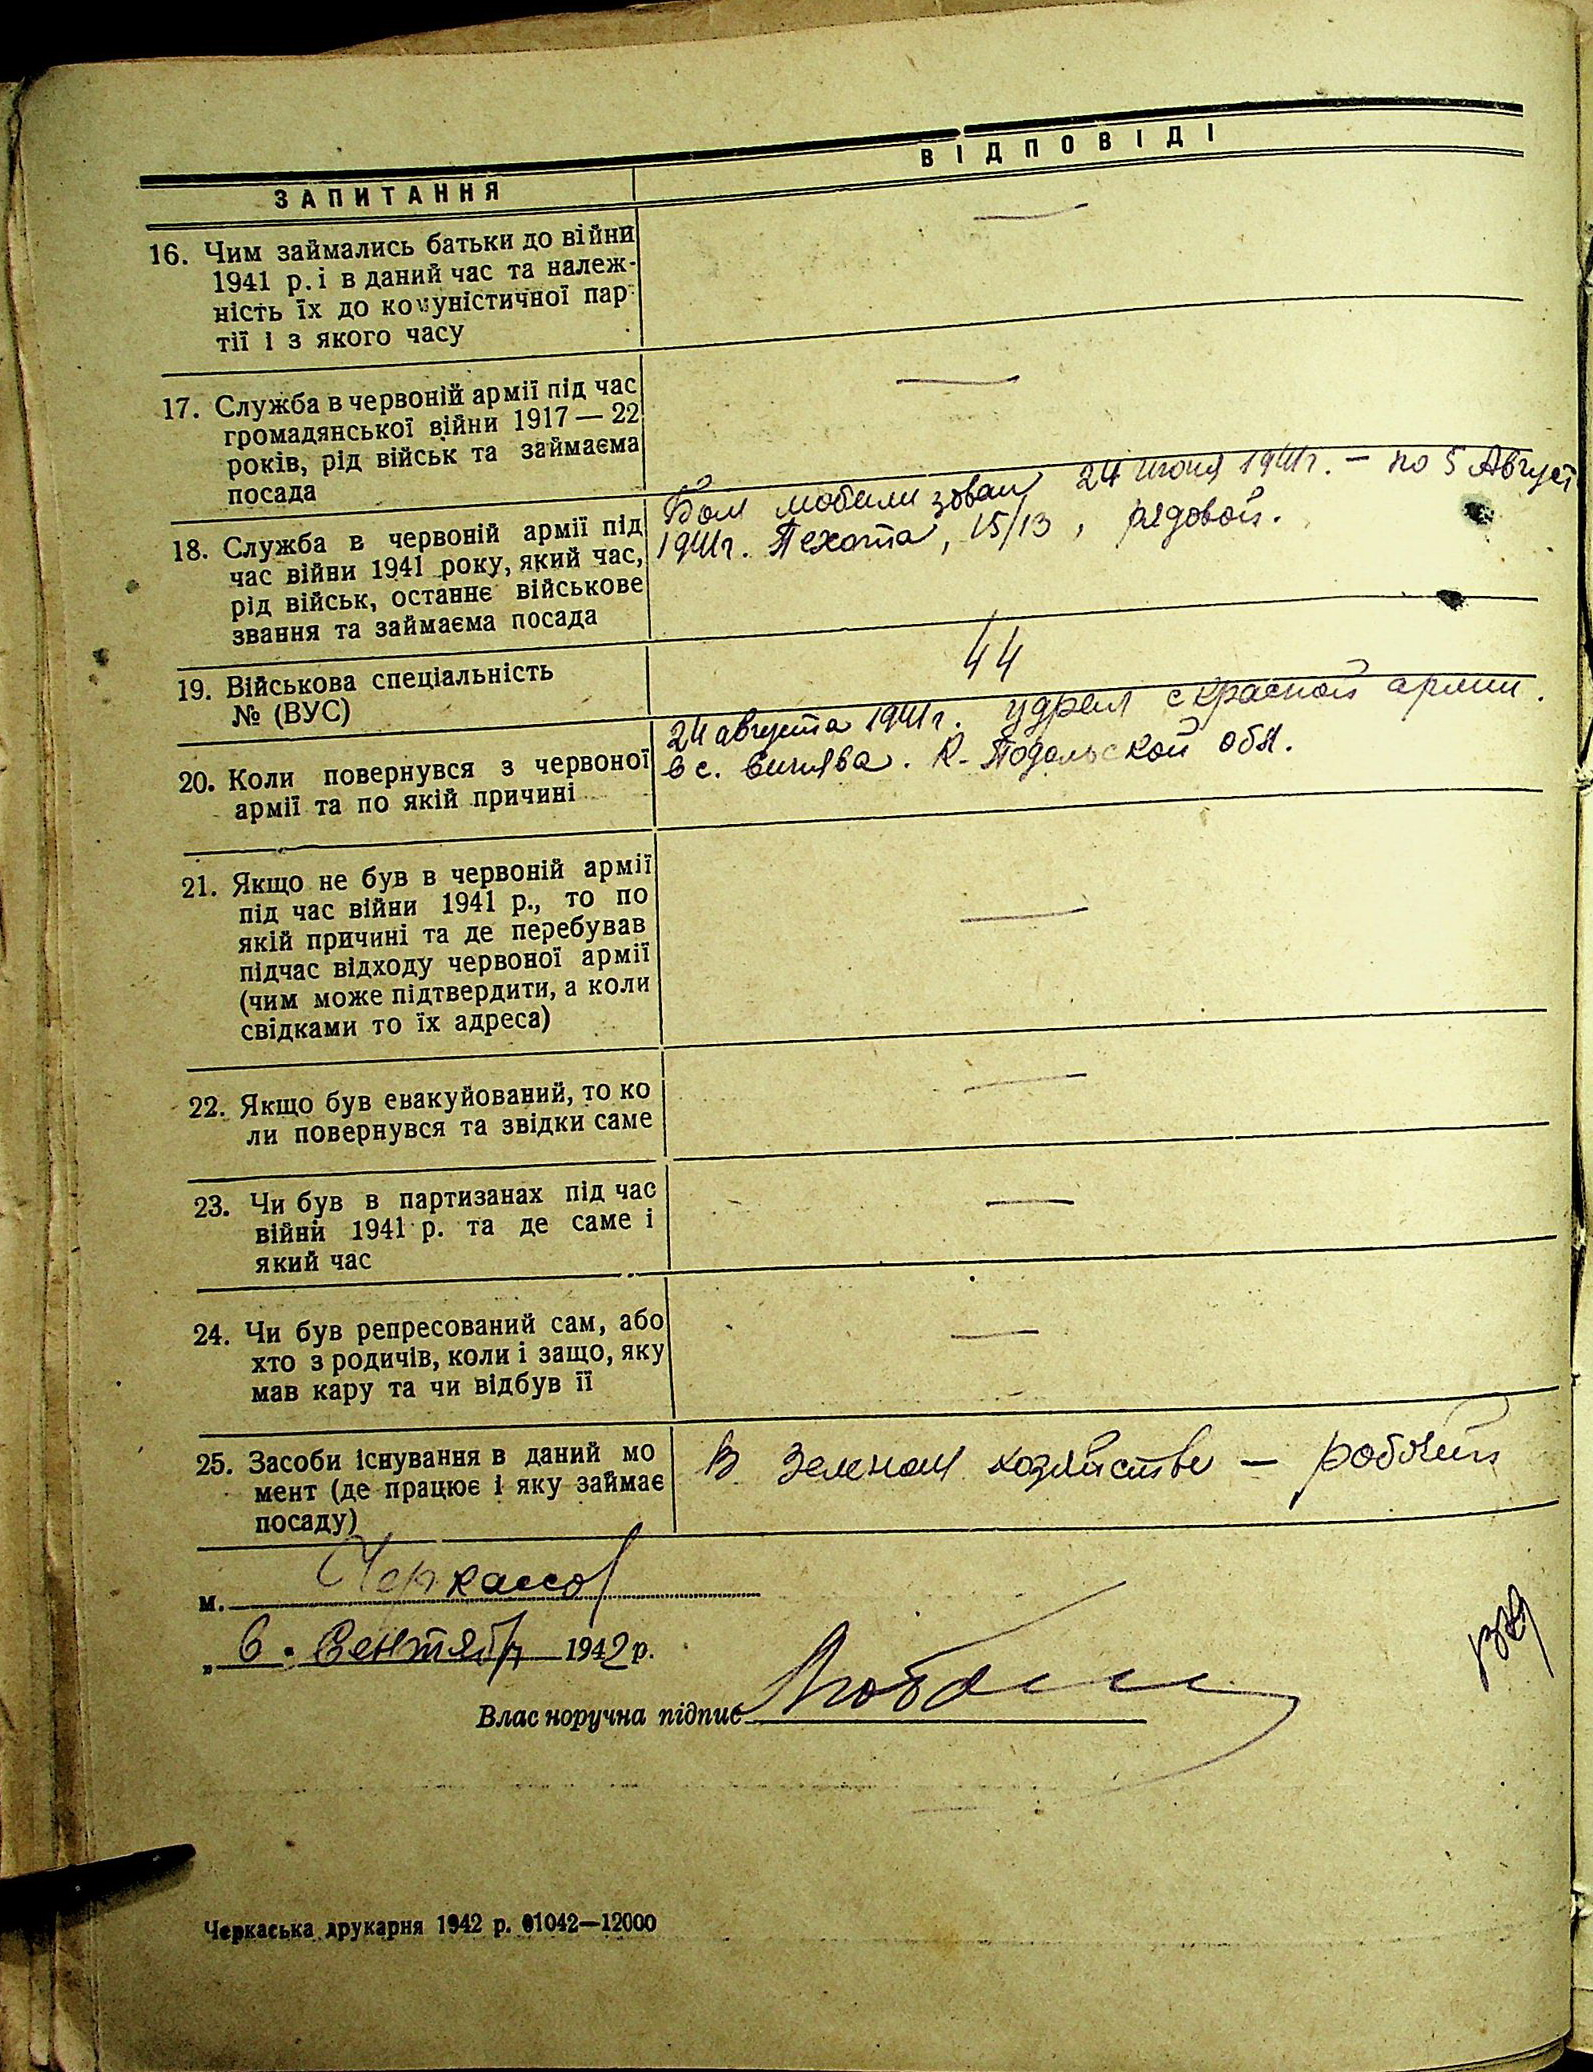 ЗАПИТАННЯ
ВІДПОВІДІ
16. Чим займались батьки до війни
1941 р. і в даний час та належ-
ність їх до комуністичної пар-
тії і з якого часу
—
17. Служба в червоній армії під час
громадянської війни 1917 — 22
років, рід військ та займаєма
посада
—
18. Служба в червоній армії під
час війни 1941 року, який час,
рід військ, останнє військове
звання та займаєма посада
Был мобилизован 24 июня 1941г. — по 5 Август
1941г. Пехота, 15/13, рядовой.
19. Військова спеціальність
№ (ВУС)
44
20. Коли повернувся з червоної
армії та по якій причині
24 августа 1941г. удрал с красной армии.
в с. К-Подольской обл.
21. Якщо не був в червоній армії
під час війни 1941 р., то по
якій причині та де перебував
підчас відходу червоної армії
(чим може підтвердити, а коли
свідками то їх адреса)
—
22. Якщо був евакуйований, то ко
ли повернувся та звідки саме
—
23. Чи був в партизанах під час
війни 1941 р. та де саме і
який час
—
24. Чи був репресований сам, або
хто з родичів, коли і защо, яку
мав кару та чи відбув її
—
25. Засоби існування в даний мо
мент (де працює і яку займає
посаду)
В Зеленом хозяйстве — рабочий
м. Черкассы
„ 6 " Сентября 1942 р.
Влас норучна підпис
Черкаська друкарня 1942 р. 01042—12000